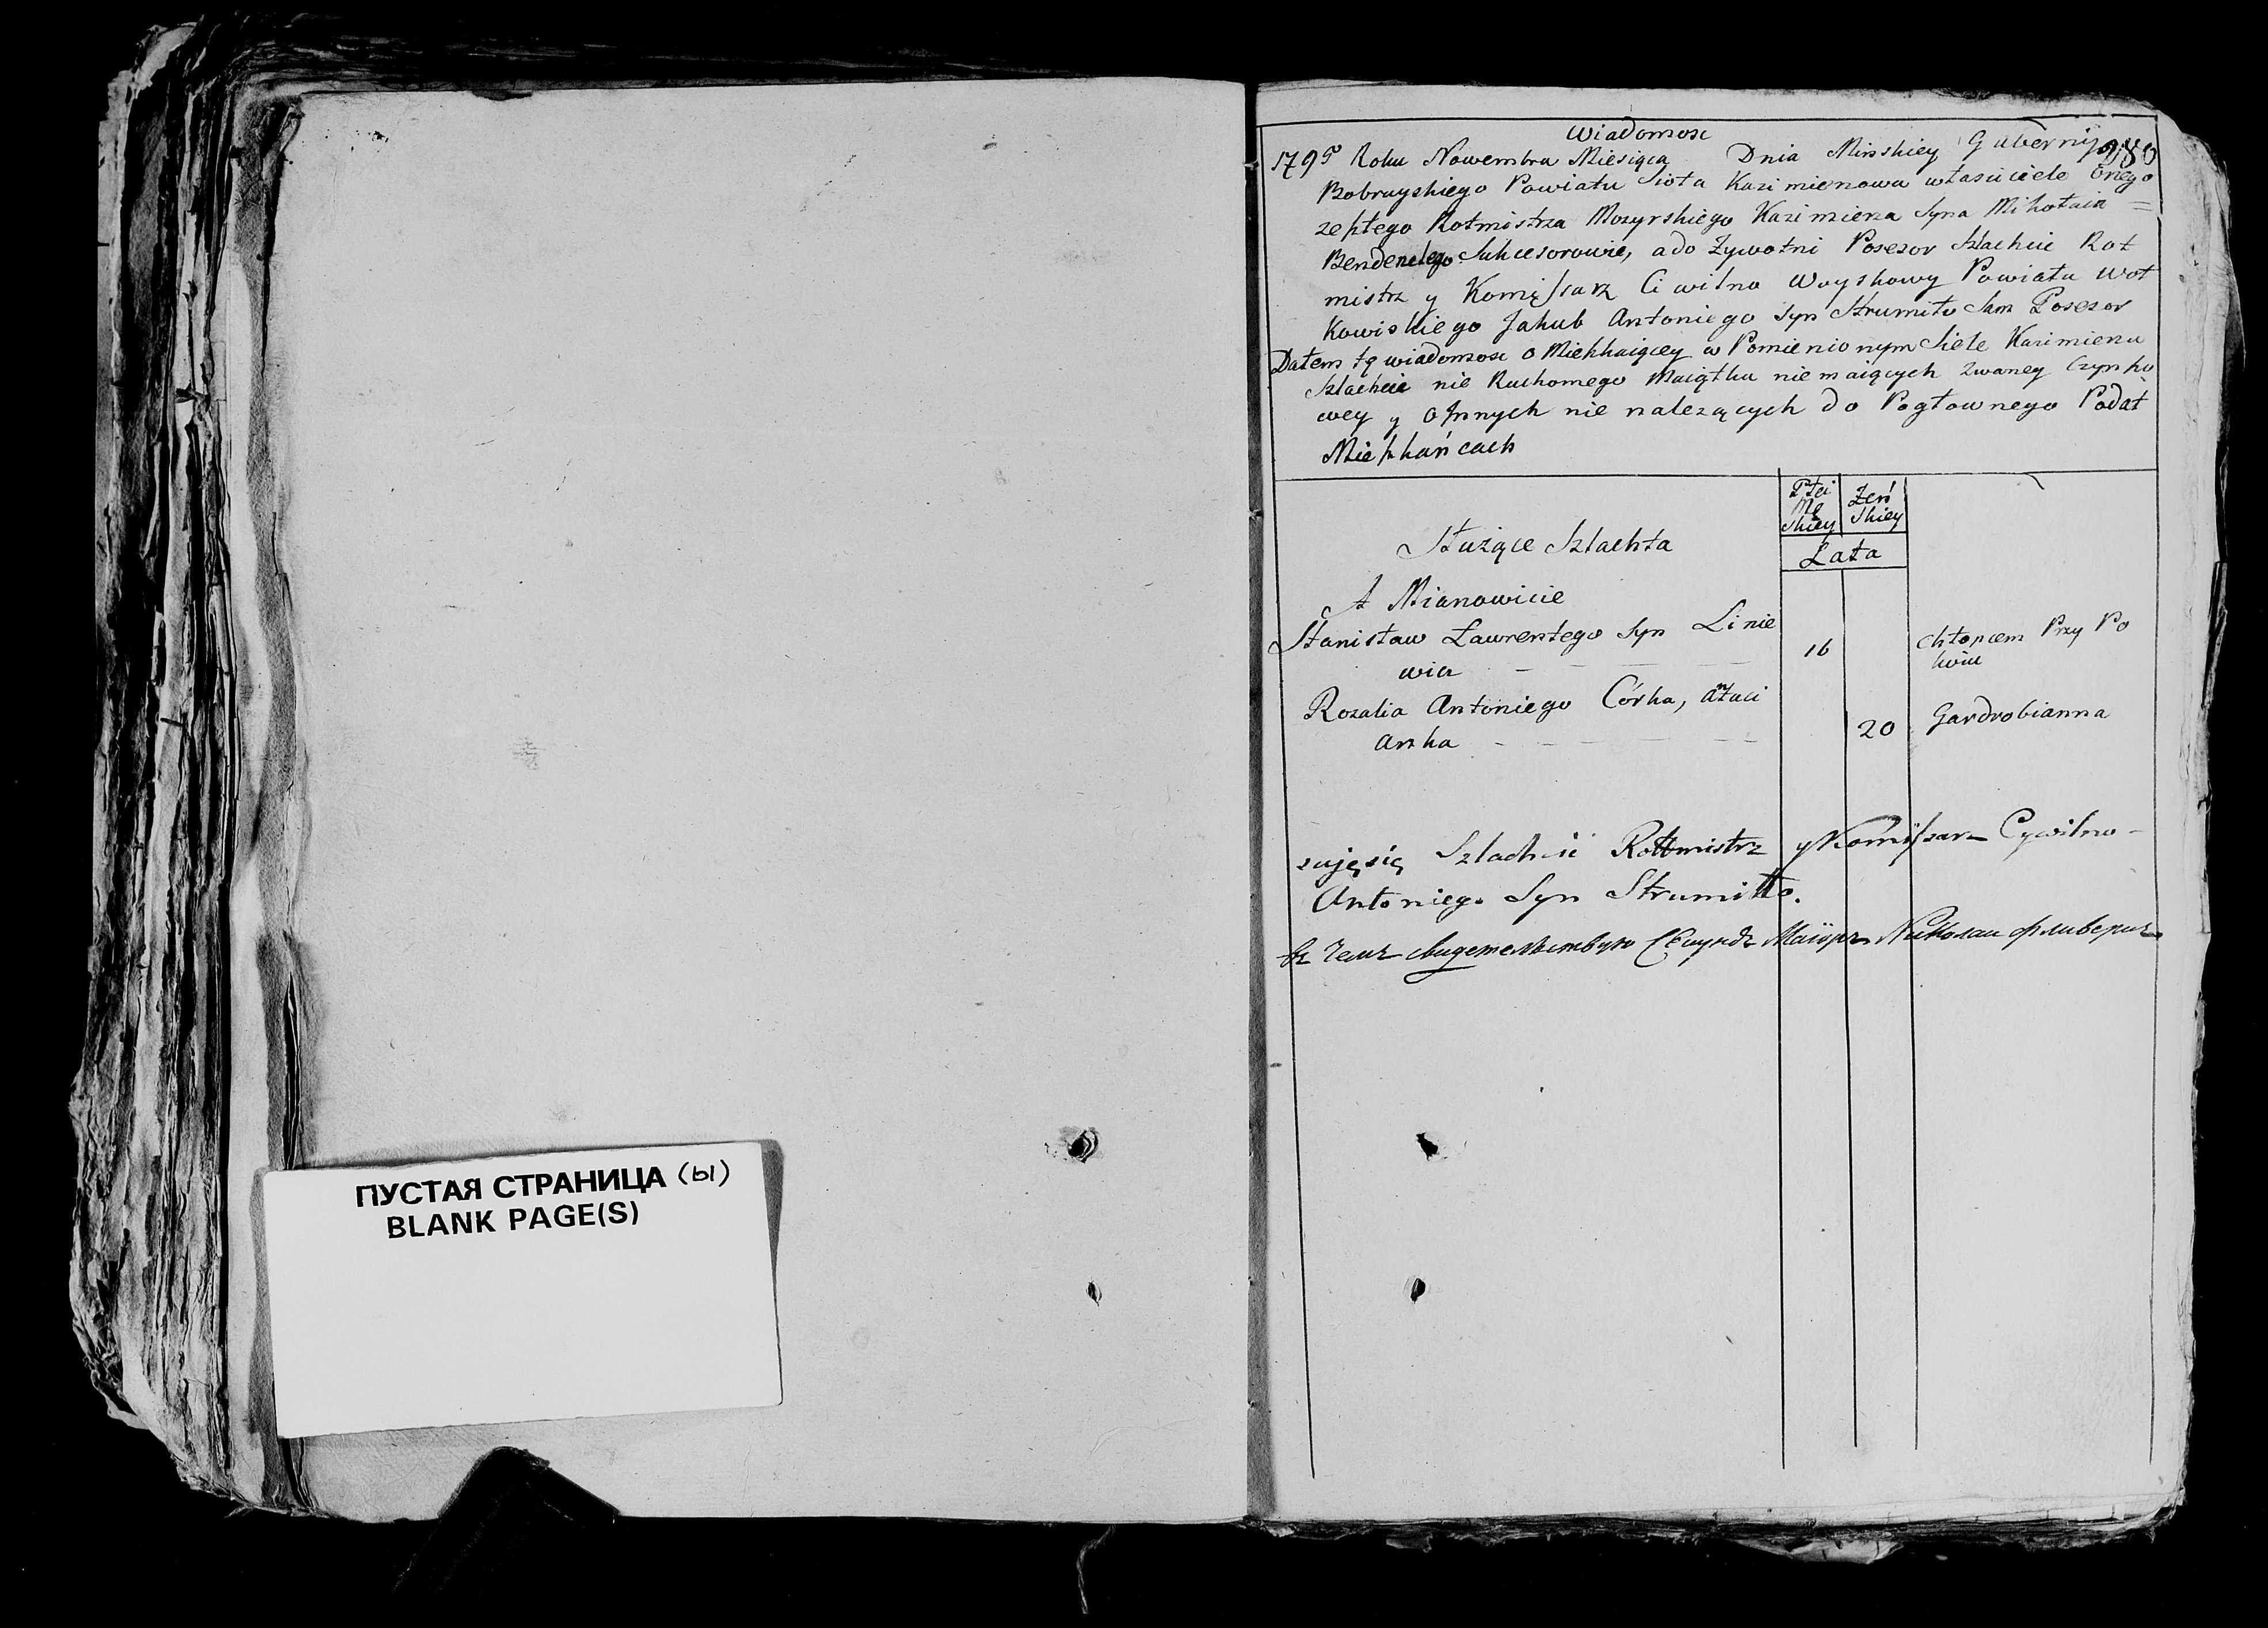 ПУСТАЯ СТРАНИЦА (ы)
BLANK PAGE(S)
Wiadomosc
1795 Roku Nowembra Miesiąca Dnia Minskiey Gubernij 980
Bobruyskiego Powiatu Sioła Kazimierzowa własciciele onego
zeszłego Rotmistrza Mozyrskiego Kazimierza Syna Mikołaia =
Sukcesorowie, a do Zywotni Posesor Szlachcic Rot
mistrz y Komissarz Ciwilno Woyskowy Powiatu Woł
kowiskiego Jakub Antoniego Syn Strumiło Sam Posesor
Dałem tę wiadomosc o Mieszkaiącey w Pomienionym Siele Kazimierzu
Szlachcie nie Ruchomego Maiątku niemaiących zwaney Czynszo
wey y o Innych nie nalezących do Pogłownego Podat
Mieszkańcach
Płci Mę skiey
Zeń skiey
Służące Szlachta
Lata
A Mianowicie
Stanisław Ławrentego Syn Linie
wicz 16 Chłopcem Przy Po
koiu
Rozalia Antoniego Córka,
anka 20 Gardrobianna
suję się Szlachcic Rottmistrz y Komissarz Cywilno-
Antoniego Syn Strumiłło.
въ чемъ свидетельствую Секундъ Маіоръ Николай